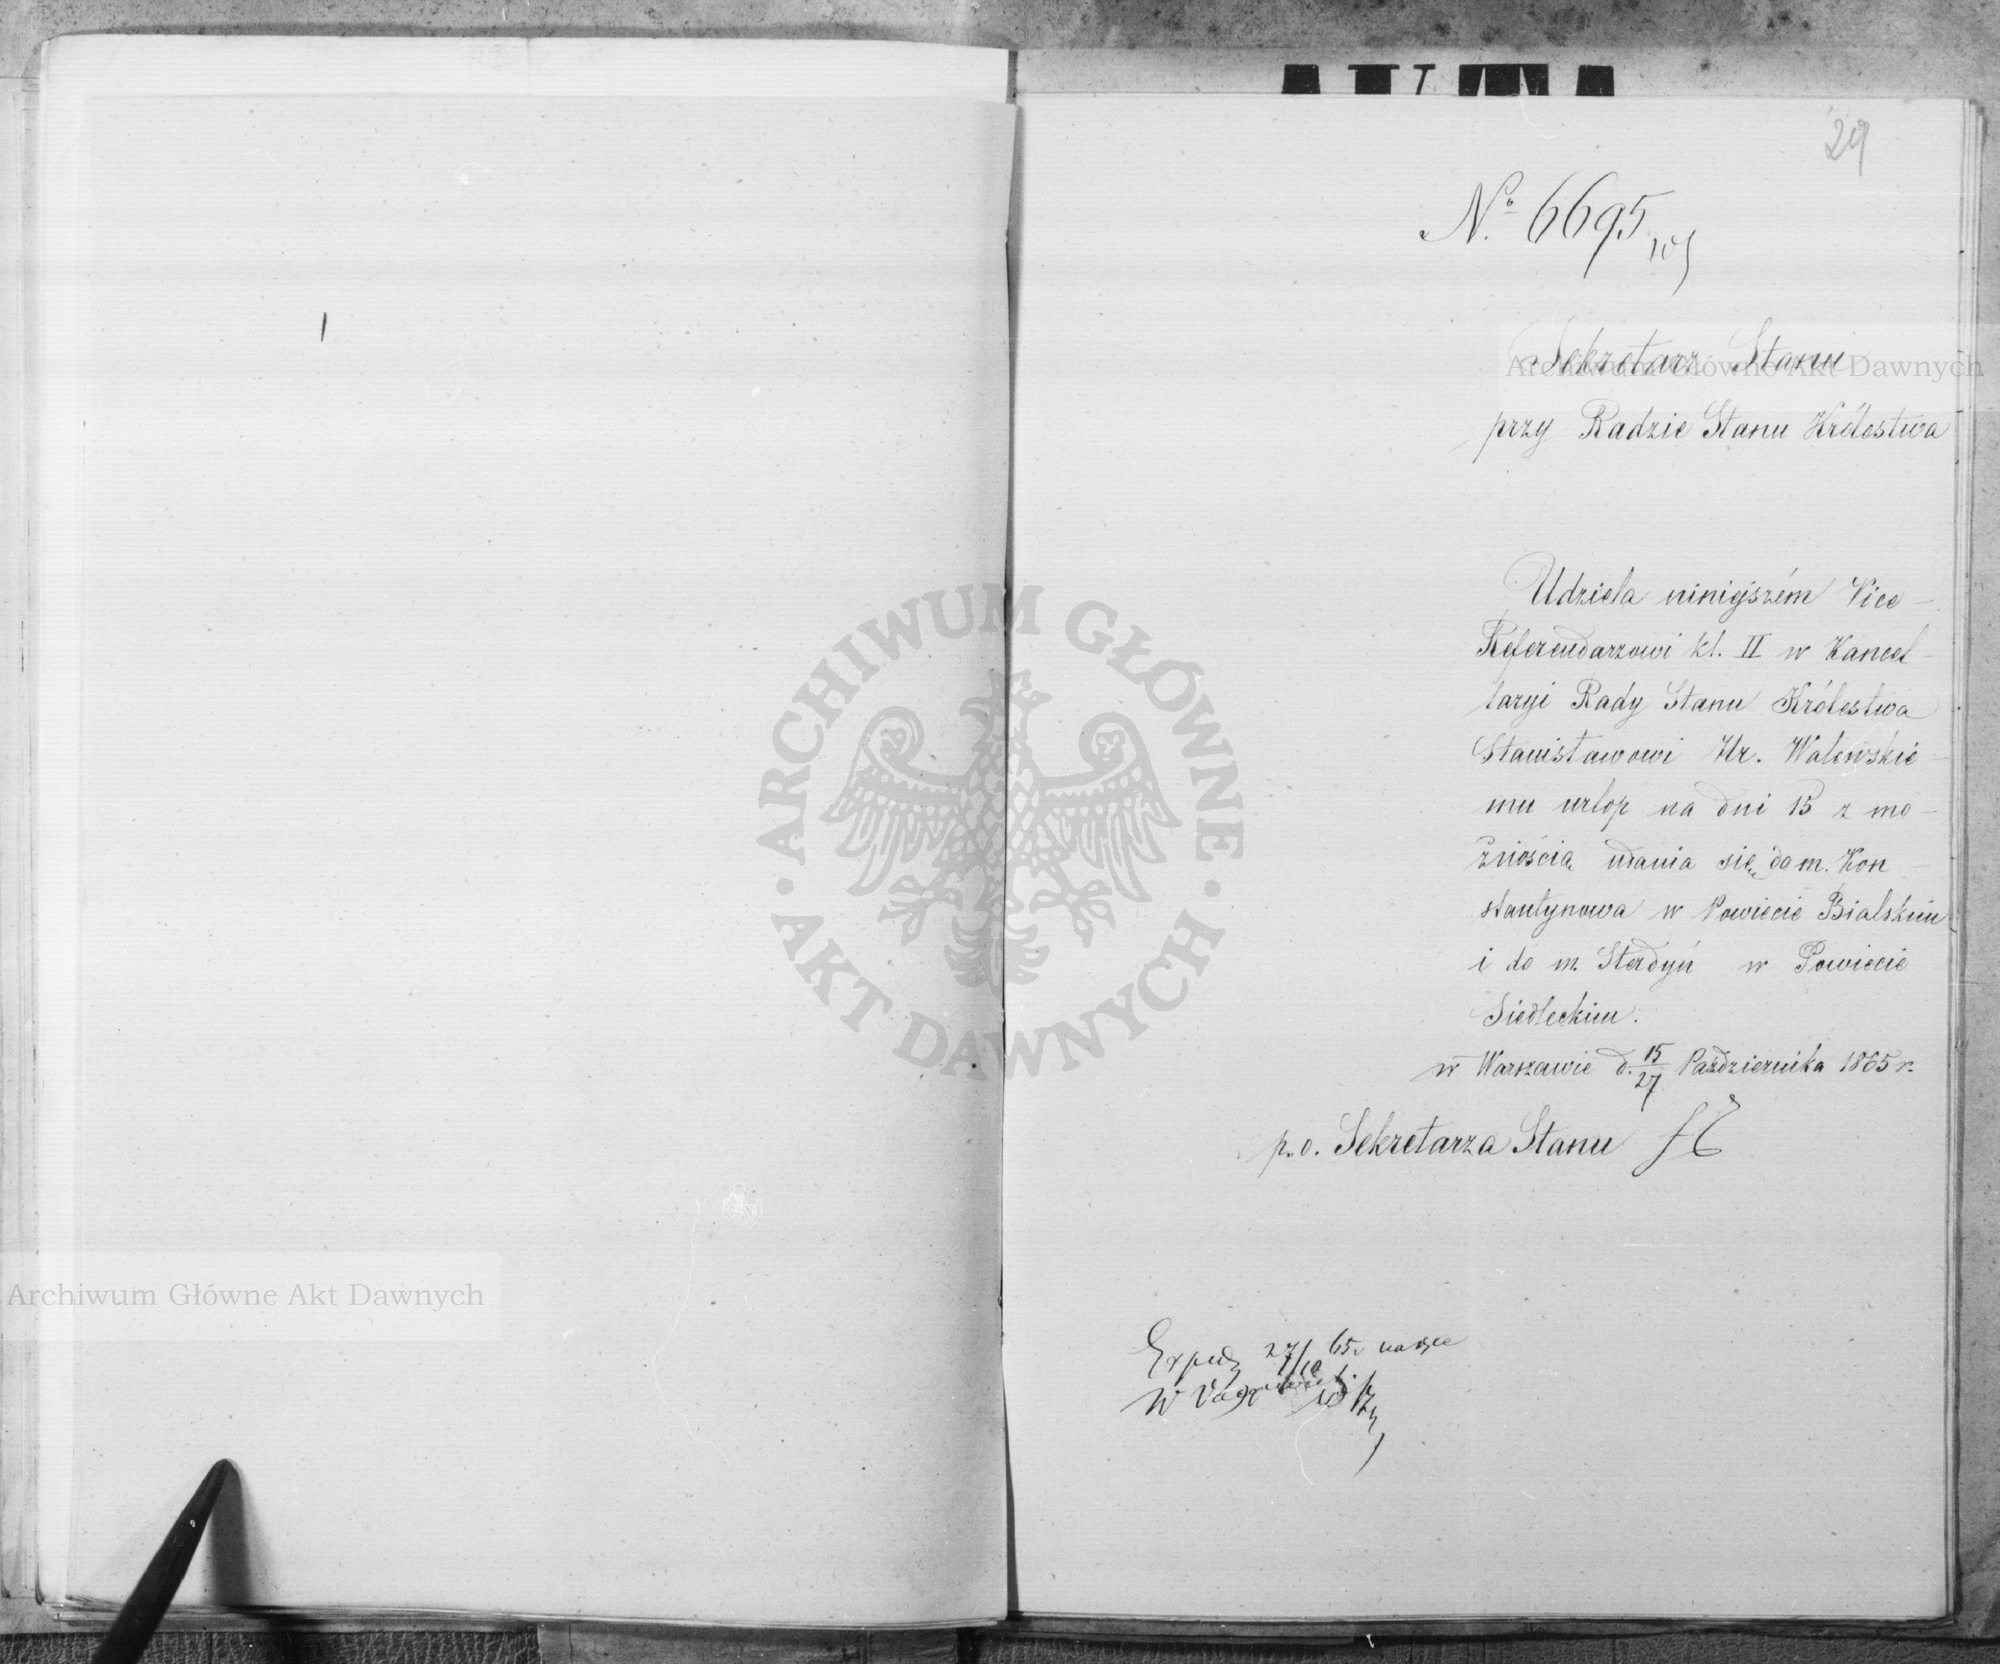 29
No. 6695
Sekretarz Stanu
przy Radzie Stanu Królestwa
Udziela niniejszém Vice-
Referendarzowi kl. II w Kancel-
laryi Rady Stanu Królestwa
Stanisławowi Hr. Walewskie-
mu urlop na dni 15 z mo-
żnością udania się do m. Kon-
stantynowa w Powiecie Bialskim
i do m. Sterdyń w Powiecie
Siedleckim.
w Warszawie d. 15/27 Października 1865 r.
p.o. Sekretarza Stanu
Exped 27/10 65
W
Archiwum Główne Akt Dawnych
ARCHIWUM GŁÓWNE
AKT DAWNYCH
Archiwum Główne Akt Dawnych